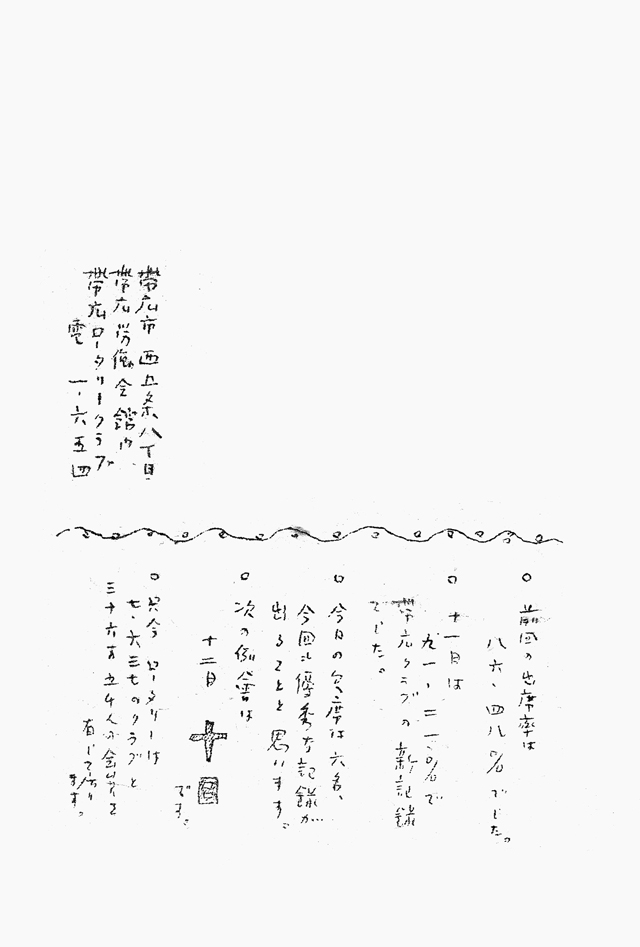 帯広市 西五条八丁目
帯広労働会館内
帯広ロータリークラブ
電 一、六五四
○ 前回の出席率は
八六、四八%でした。
○ 十一月は
九一、二一%で
帯広クラブの新記録
でした。
○ 今日の欠席は六名、
今回も優秀な記録が
出ることと思います。
○ 次の例会は
十二月 十日
です。
○ 只今 ロータリーは
七、六三七のクラブと
三十六万五千人の会員を
有して居り
ます。